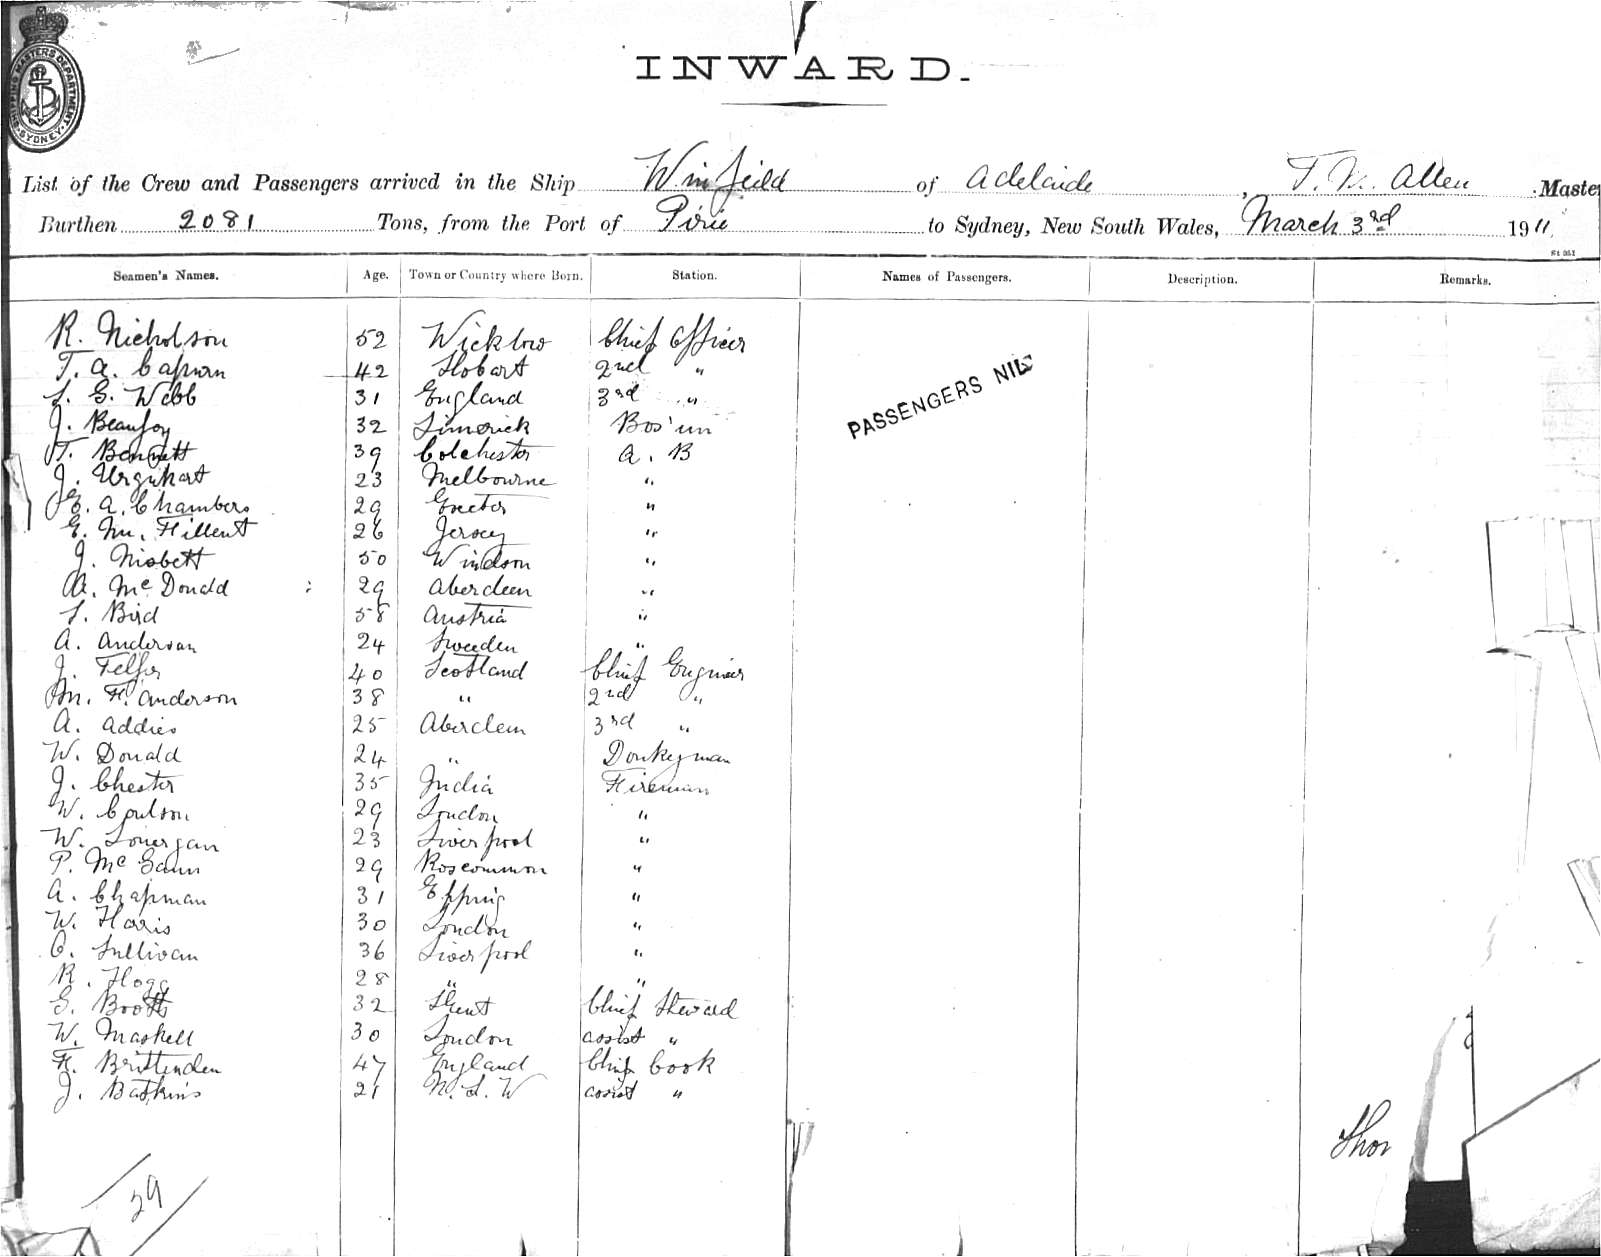 SHIPPING MASTERS DEPARTMENT. SYDNEY.
INWARD.
List of the Crew and Passengers arrived in the Ship Winfield of Adelaide, T. W. Allen Maste
Burthen 2081 Tons, from the Port of Pirie to Sydney, New South Wales, March 3rd 1911.
St 351
Seamen's Names. Age. Town or Country where Born. Station. Names of Passengers. Description. Remarks.
R. Nicholson 52 Wicklow Chief Officer
T. A. Capurn 42 Hobart 2nd "
31 England 3rd "
J. Beaufoy 32 Limerick Bos'un
T. Bennett 39 Colchester A. B
J. Urquhart 23 Melbourne "
E. A. Chambers 29 Exeter "
E. M. 26 Jersey "
J. Nisbett 50 Windson "
A. McDonald 29 Aberdeen "
L. Bird 58 Austria "
A. Anderson 24 Sweeden "
J. Telfer 40 Scotland Chief Engineer
M. H. Anderson 38 " 2nd "
A. Addies 25 Aberdeen 3rd "
W. Donald 24 " Donkeyman
J. Chester 35 India Fireman
W. Coulson 29 London "
W. Lonergan 23 Liverpool "
P. McGann 29 Roscommon "
A. Chapman 31 Epping "
W. Harris 30 London "
C. Sullivan 36 Liverpool "
R. Hogg 28 " "
G. Booth 32 Kent Chief Steward
W. Maskell 30 London assist "
H. Brittenden 47 England Chief Cook
J. Batkins 21 N. S. W assist "
PASSENGERS NIL
29